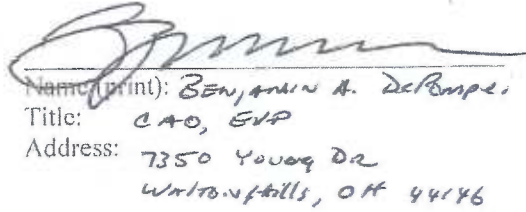 Name(print): BENJAMIN A. DePompei
Title: CAO, EVP
Address: 7350 Young DR
Walton Hills, OH 44146